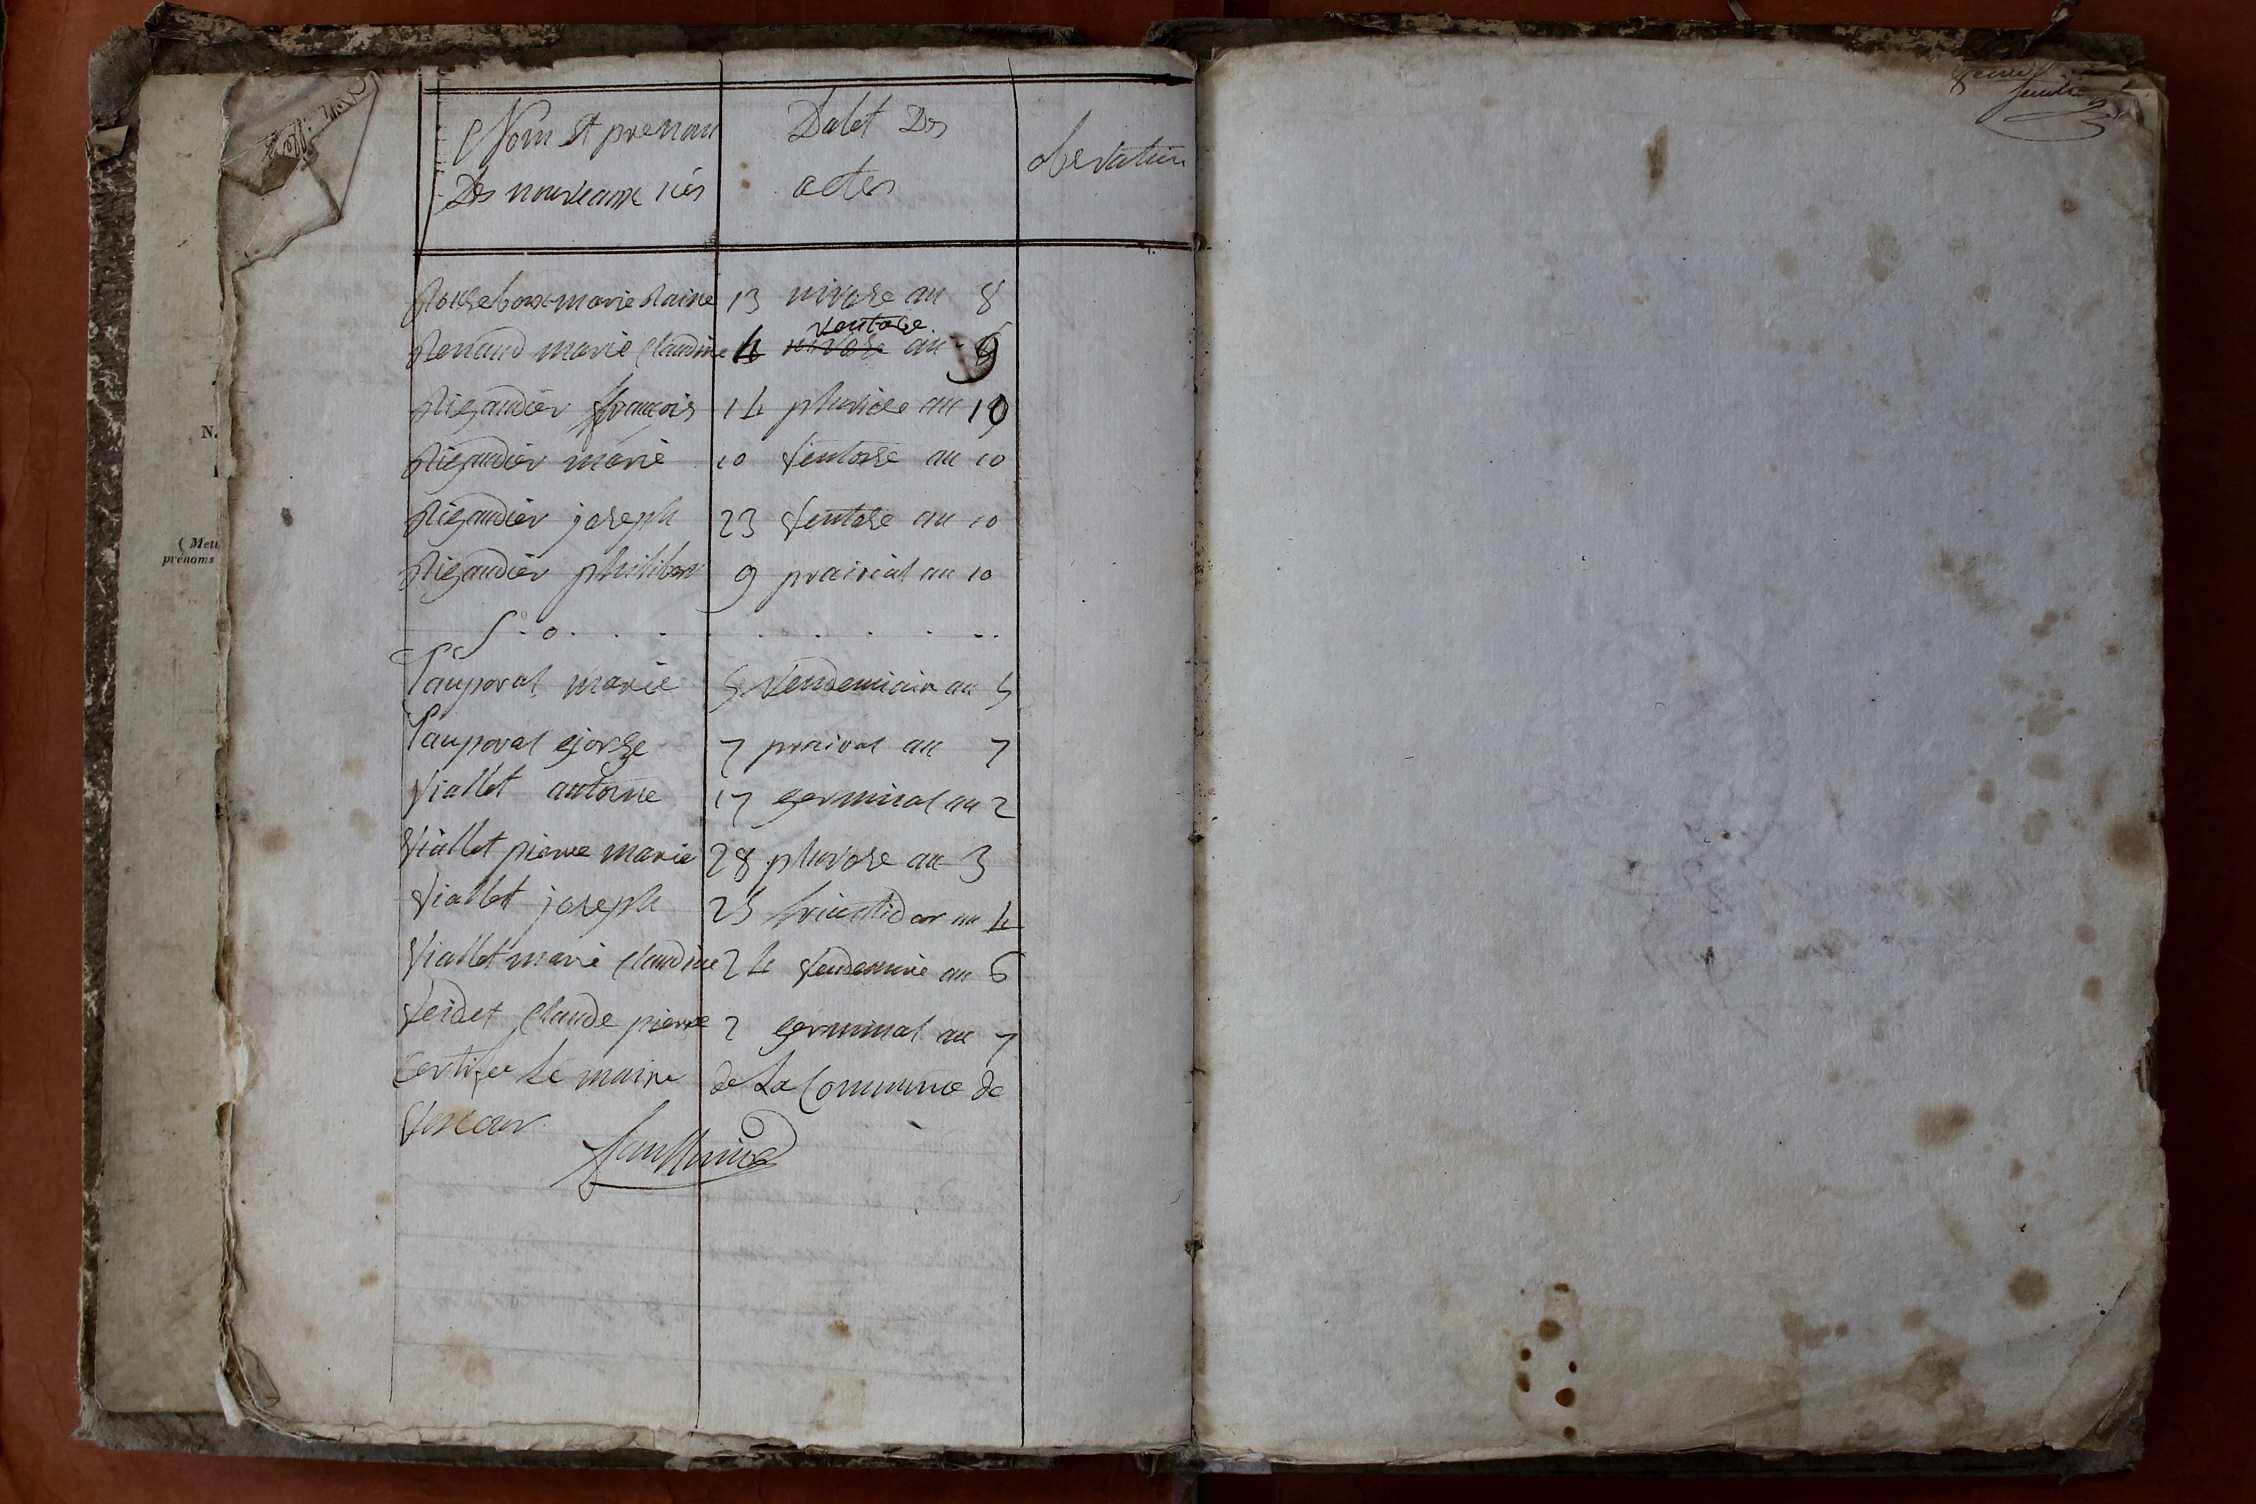 Nom et prenom
Des nouveaux nés
Datet Des
actes
obervation
Roussebous marie Raine 13 nivose an 8
ventose
Renaud marie Claudine 4 nivose an 9
Rigaudier françois 14 pluviose an 10
Rigaudier marie 10 Ventose an 10
Rigaudier joseph 23 Ventose an 10
Rigaudier philiber 9 prairial an 10
S. o.
Tauporat marie 5 Vendemiair an 5
Tauporat gjorge 7 prairal an 7
Viallet antoine 17 germinal an 2
Viallet pierre marie 28 pluvose an 3
Viallet joseph 25 fructidor an 4
Viallet marie Claudine 24 Vendemire an 6
Verdet Claude pierre 2 germinal an 7
Certifié Le maire de La Commune de
N.
( Mett
prénoms